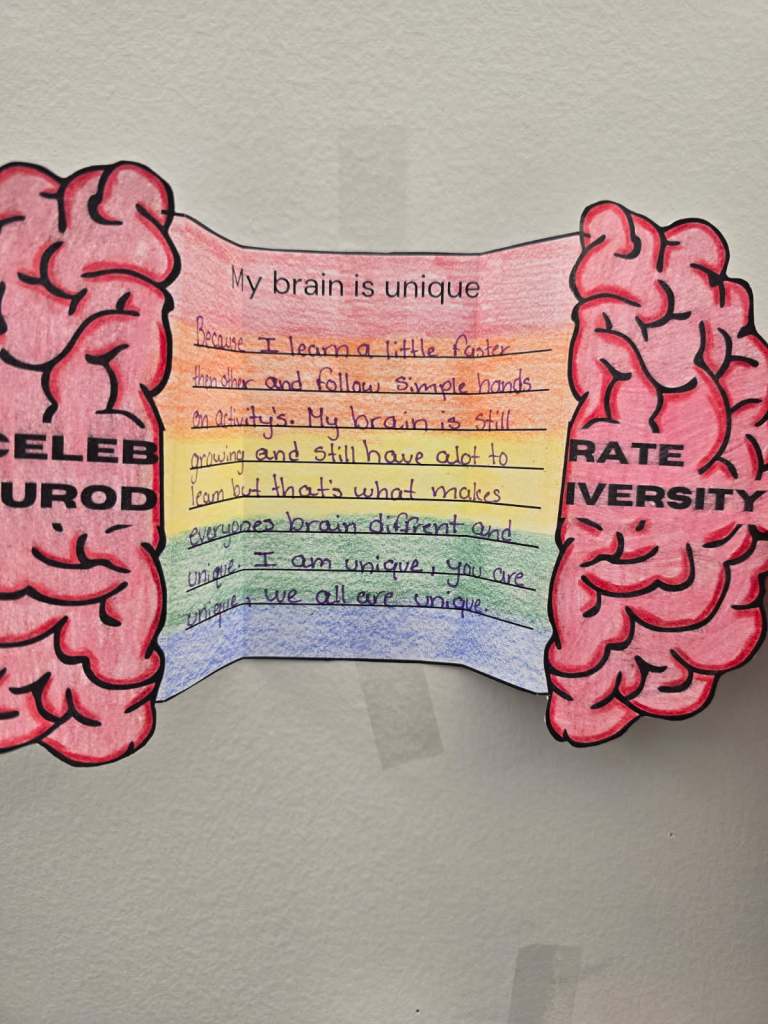 My brain is unique
Because I learn a little faster
then other and follow simple hands
on activity's. My brain is still
growing and still have alot to
learn but that's what makes
everyones brain diffrent and
unique. I am unique, you are
unique, we all are unique.
CELEB RATE
UROD IVERSITY